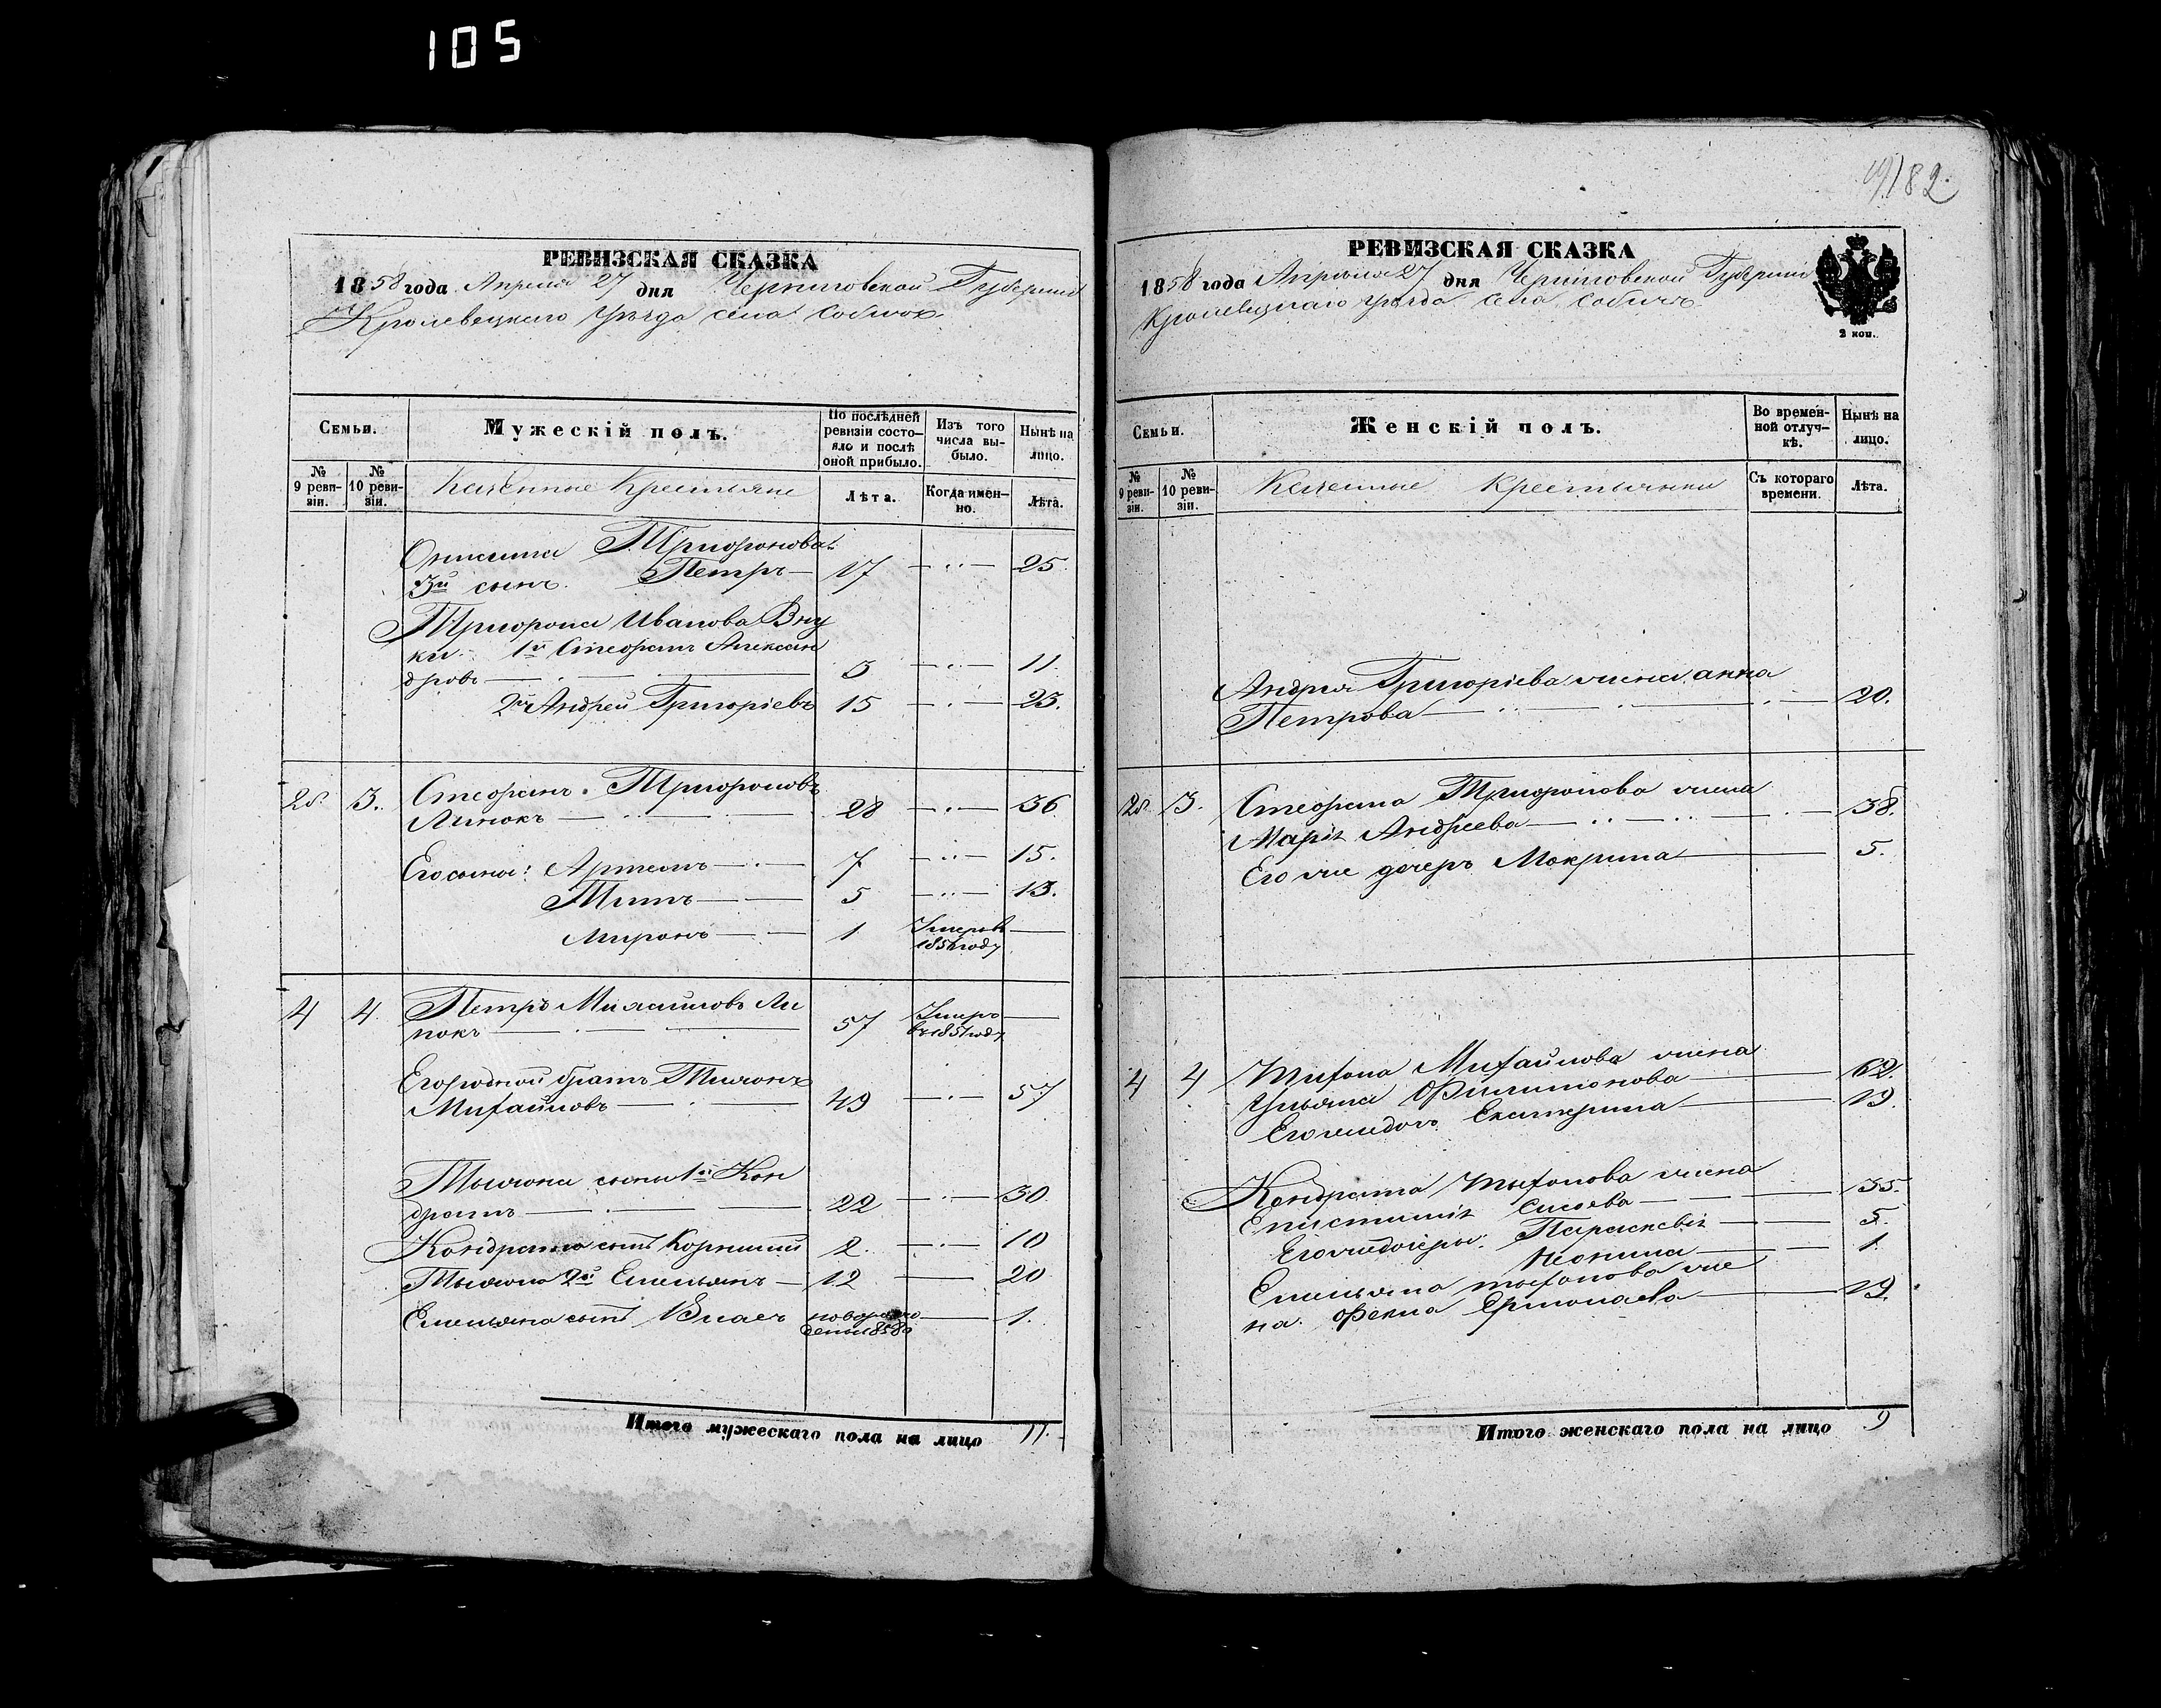 105
182.
РЕВИЗСКАЯ СКАЗКА
1858 года Апреля 27 дня Черниговской Губернии
Кролевецкаго уѣзда села Собичъ
Семьи.
Мужескій полъ.
По послѣдней ревизіи состояло и послѣ оной прибыло.
Изъ того числа выбыло.
Нынѣ на лицо.
№ 9 ревизіи.
№ 10 ревизіи.
Казенные Крестьяне
Лѣта.
Когда именно.
Лѣта.
Трифонова
3й сынъ. Петръ — 17 — 25
Трифона Иванова Вну
ки. 1й Стефанъ Алексан
дровъ — 3 — 11.
2й Андрей Григоріевъ 15 — 23.
3. Стефанъ Трифоновъ
Линокъ — 28 — 36
Его сыны: Артемъ — 7 — 15.
Титъ — 5 — 13.
Миронъ — 1 Умеръ въ —
4 4 Петръ Михайловъ Ли
нокъ — 57 Умеръ —
въ 1851 году
Его родной братъ Тихонъ
Михайловъ — 49 — 57
Тихона сыны 1й Кон
дратъ — 22 — 30
Кондрата сынъ Корнилій 2. — 10
Тихона 2й Емельянъ — 12 — 20
Емельяна сынъ Власъ новорож — 1.
Итого мужескаго пола на лицо 11.
РЕВИЗСКАЯ СКАЗКА
1858 года Апреля 27 дня Черниговской Губернии
Кролевецкаго уѣзда села Собичъ
2 коп.
Семьи.
Женскій полъ.
Во временной отлучкѣ.
Нынѣ на лицо.
№ 9 ревизіи.
№ 10 ревизіи.
Казенные Крестьянки
Съ котораго времени.
Лѣта.
Андрея Григоріева жена Анна
Петрова — 20.
3. Стефана Трифонова жена
Марія Андреева — 38.
Его же дочеръ Мокрина — 5.
4 4 Тихона Михайлова жена
Ульяна Филимонова — 62.
Его же дочъ Екатерина — 19.
Кондрата Тихонова жена
Сисоева — 35.
Его же дочеры: Параскевія — 5.
— 1
Емельяна Тихонова же
на Фекла Ермолаева — 19.
Итого женскаго пола на лицо 9